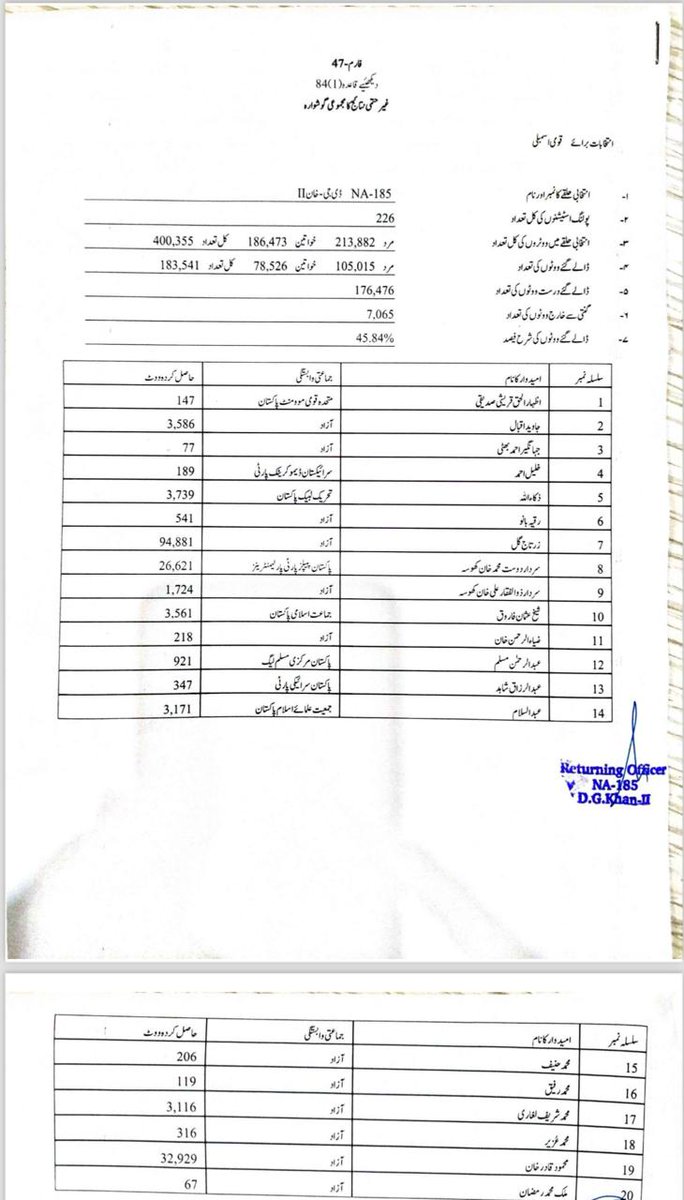 فارم-47
دیکھئیے قاعدہ (1)84
غیر حتمی نتائج کا مجموعی گوشوارہ
انتخابات برائے قومی اسمبلی
۱- انتخابی حلقے کا نمبر اور نام NA-185 ڈی-جی-خان II
۲- پولنگ اسٹیشنوں کی کل تعداد 226
۳- انتخابی حلقے میں ووٹروں کی کل تعداد مرد 213,882 خواتین 186,473 کل تعداد 400,355
۴- ڈالے گئے ووٹوں کی تعداد مرد 105,015 خواتین 78,526 کل تعداد 183,541
۵- ڈالے گئے درست ووٹوں کی تعداد 176,476
۶- گنتی سے خارج ووٹوں کی تعداد 7,065
۷- ڈالے گئے ووٹوں کی شرح فیصد 45.84%
سلسلہ نمبر امیدوار کا نام جماعتی وابستگی حاصل کردہ ووٹ
1 اظہار الحق قریشی صدیقی متحدہ قومی موومنٹ پاکستان 147
2 جاوید اقبال آزاد 3,586
3 جہانگیر احمد بھٹی آزاد 77
4 خلیل احمد سرائیکستان ڈیموکریٹک پارٹی 189
5 ذکاءاللہ تحریک لبیک پاکستان 3,739
6 رقیہ بانو آزاد 541
7 زرتاج گل آزاد 94,881
8 سردار دوست محمد خان کھوسہ پاکستان پیپلز پارٹی پارلیمنٹیرینز 26,621
9 سردار ذوالفقار علی خان کھوسہ آزاد 1,724
10 شیخ عثمان فاروق جماعت اسلامی پاکستان 3,561
11 ضیاء الرحمن خان آزاد 218
12 عبد الرحمٰن مسلم پاکستان مرکزی مسلم لیگ 921
13 عبد الرزاق شاہد پاکستان سرائیکی پارٹی 347
14 عبد السلام جمعیت علمائے اسلام پاکستان 3,171
Returning Officer
NA-185
D.G.Khan-II
سلسلہ نمبر امیدوار کا نام جماعتی وابستگی حاصل کردہ ووٹ
15 محمد حنیف آزاد 206
16 محمد رفیق آزاد 119
17 محمد شریف لغاری آزاد 3,116
18 محمد عزیر آزاد 316
19 محمود قادر خان آزاد 32,929
20 ملک محمد رمضان آزاد 67